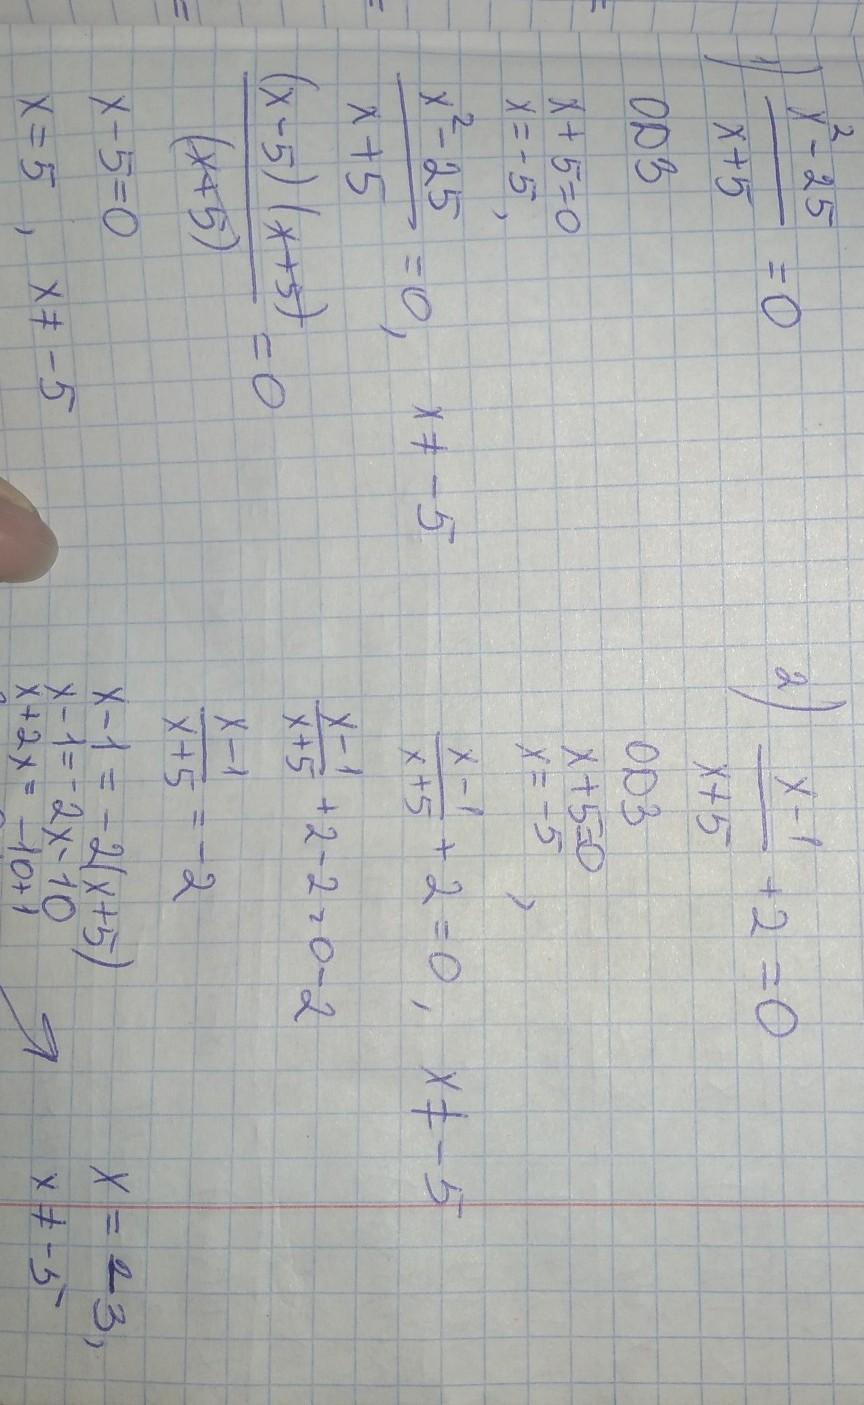 1) x² - 25 / x + 5 = 0
ОДЗ
x + 5 = 0
x = -5,
x² - 25 / x + 5 = 0, x ≠ -5
(x - 5)(x + 5) / (x + 5) = 0
x - 5 = 0
x = 5, x ≠ -5
2) x - 1 / x + 5 + 2 = 0
ОДЗ
x + 5 = 0
x = -5,
x - 1 / x + 5 + 2 = 0, x ≠ -5
x - 1 / x + 5 + 2 - 2 = 0 - 2
x - 1 / x + 5 = -2
x - 1 = -2(x + 5)
x - 1 = -2x - 10
x + 2x = -10 + 1
x = -3,
x ≠ -5